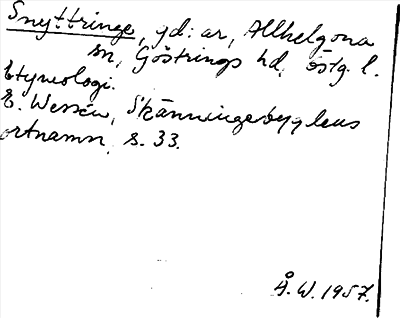 Snyttringe, gd:ar, Allhelgona
sn, Göstrings hd, östg. l.
Etymologi.
E. Wessén, Skänningebygdens
ortnamn, s. 33.
Å.W. 1957.